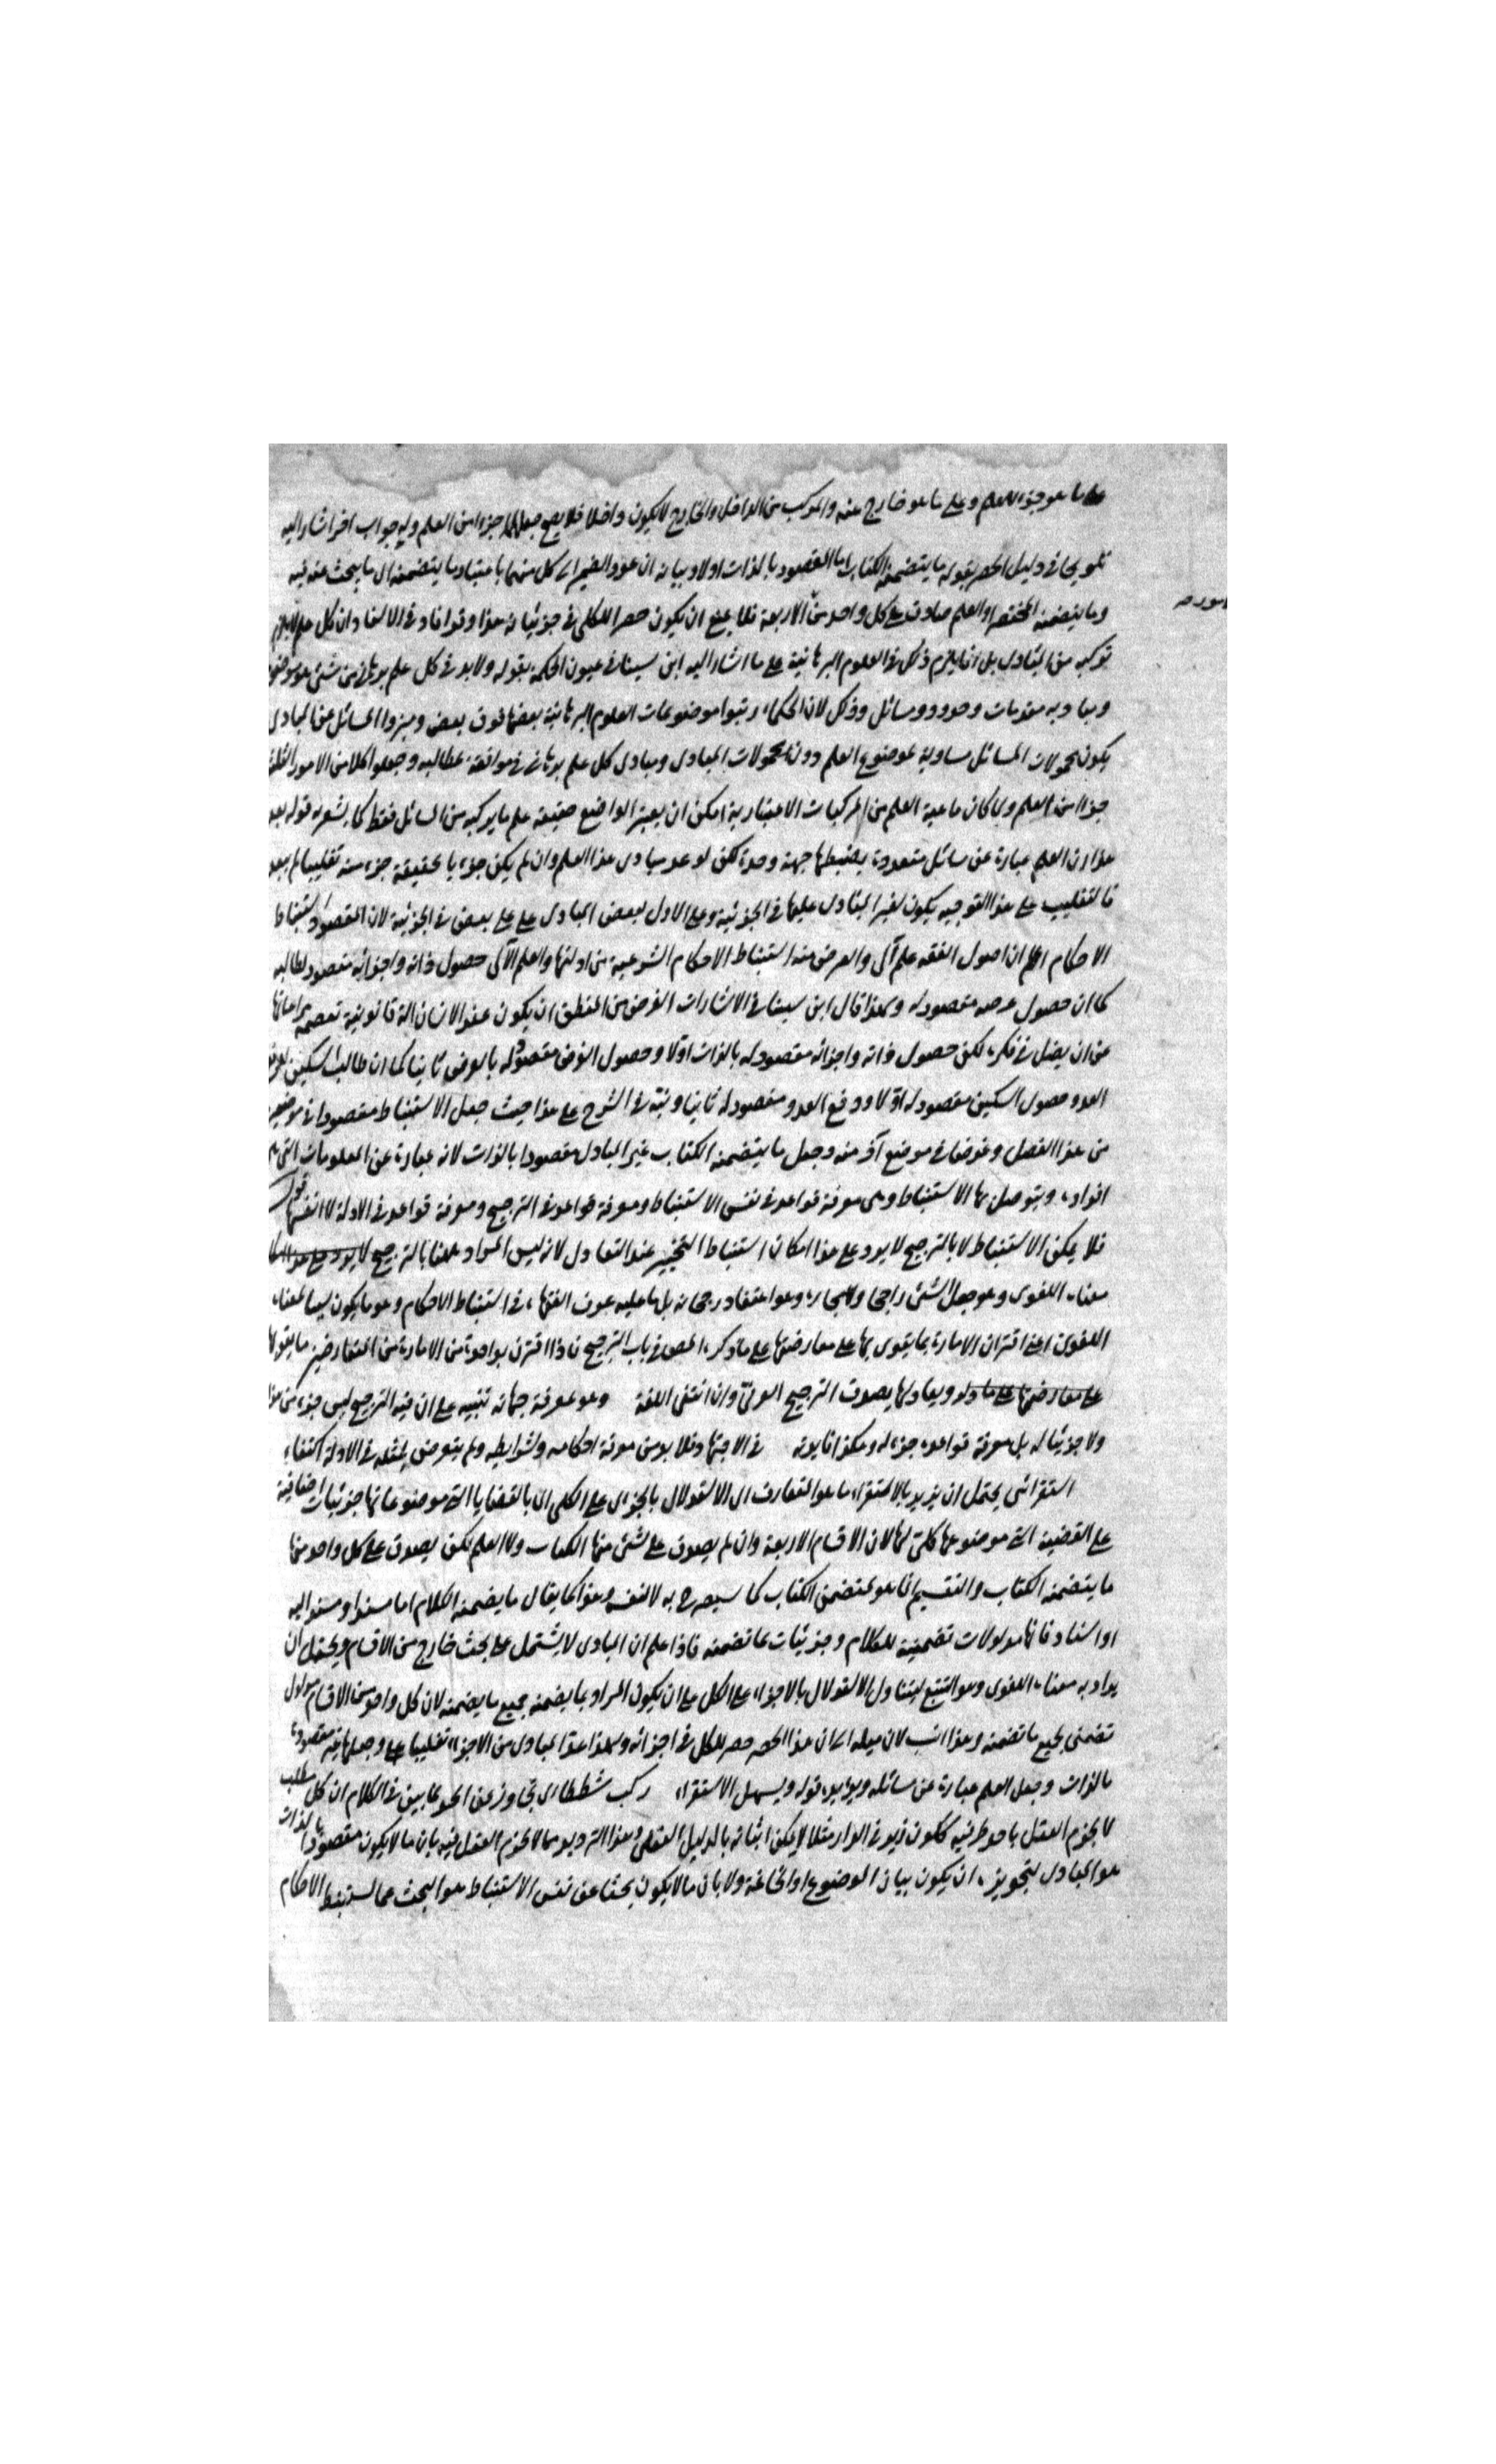 على ما هو جزء العلم وعلى ما هو خارج عنه والمركب من الداخل والخارج لا يكون داخلا فلا يصح جعلها جزءا من العلم وله جواب اخر اشار اليه
تلويحا في دليل الحصر بقوله ما يتضمنه الكتاب اما المقصود بالذات اولا وبيانه ان عود الضمير الى كل منهما باعتبار ما يتضمنه اى ما يبحث عنه فيه
وما يتضمنه المختصر او العلم صادق على كل واحد من الاربعة فلا يمنع ان يكون حصر الكلى في جزئياته هذا وقد افاد في الاستاد ان كل علم لا يلزم
تركبه من المبادى بل انما يلزم ذلك في العلوم البرهانية على ما اشار اليه ابن سينا في عيون الحكمة بقوله ولا بد في كل علم برهانى من شئ هو موضوع
ومبادى به مقدمات وحدود ومسائل وذلك لان الحكماء رتبوا موضوعات العلوم البرهانية بعضها فوق بعض وميزوا المسائل عن المبادى
بكون محمولات المسائل مساوية لموضوع العلم دون محمولات المبادى ومبادى كل علم برهانى في موافقة مطالبه وجعلوا كلا من الامور الثلثة
جزءا من العلم ولما كان ماهية العلم من المركبات الاعتبارية امكن ان يعتبر الواضع حقيقة علم ما مركبة من المسائل فقط كما يشعر به قوله بعد
هذا ان العلم عبارة عن مسائل متعددة يضبطها جهة وحدة لكن لو عد مبادى هذا العلم وان لم يكن جزء بالحقيقة جزء منه تغليبا لم يبعد
فالتغليب على هذا التوجيه يكون لغير المبادى عليها في الجزئية وعلى الاول لبعض المبادى على بعض في الجزئية لان المقصود استنباط
الاحكام اعلم ان اصول الفقه علم آلى والغرض منه استنباط الاحكام الشرعية من ادلتها والعلم الآلى حصول ذاته واجزائه مقصود لطالبه
كما ان حصول غرضه مقصود له ولهذا قال ابن سينا في الاشارات الغرض من المنطق ان يكون عند الانسان آلة قانونية تعصمه مراعاتها
من ان يضل في فكره لكن حصول ذاته واجزائه مقصود له بالذات اولا وحصول الغرض مقصود له بالعرض ثانيا كما ان طالب السكين لدفع
العدو حصول السكين مقصود له اولا ودفع العدو مقصود له ثانيا ونبه في الشرح على هذا حيث جعل الاستنباط مقصودا في موضعين
من هذا الفصل وغرضا في موضع آخر منه وجعل ما يتضمنه الكتاب غير المبادى مقصودا بالذات لانه عبارة عن المعلومات التى هى
افراده ويتوصل بها الاستنباط وهى معرفة قواعد في نفس الاستنباط ومعرفة قواعد في الترجيح ومعرفة قواعد في الادلة لا انفسها قوله
فلا يمكن الاستنباط الا بالترجيح لا يرد على هذا امكان استنباط التخيير عند التعادل لانه ليس المراد ههنا بالترجيح
معناه اللغوى وهو جعل الشئ راجحا ولا مجازه وهو اعتقاد رجحانه بل ما عليه عرف الفقهاء في استنباط الاحكام وهو ما يكون سببا لمعناه
اللغوى اعنى اقتران الامارة بما يقوى بها على معارضتها على ما ذكره المص في باب الترجيح فاذا اقترن بواحدة من الامارة من المتعارضين ما يقويها
على معارضتها وبعادلها يصدق الترجيح العرفى وان انتفى اللغة وهو معرفة جهاته تنبيه على ان فيه الترجيح ليس جزء من هذا
ولا جزئيا له بل معرفة قواعده جزء له وهكذا انا بوته في الاجتهاد فلا بد من معرفة احكامه وشرايطه ولم يتعرض لمثله في الادلة اكتفاء
استقرائى يحتمل ان يريد بالاستقراء ما هو المتعارف اى الاستدلال بالجزئى على الكلى اى بالقضايا التى موضوعاتها جزئيات اضافية
على القضية التى موضوعها كلى لها لان الاقسام الاربعة وان لم يصدق على شئ منها الكتاب ولا العلم لكن يصدق على كل واحد منها
ما يتضمنه الكتاب والتقسيم انما هو لمتضمن الكتاب كما سيصرح به لا لنفسه وهذا كما يقال ما يتضمنه الكلام اما مسندا ومسند اليه
او اسناد فانها مدلولات تضمنية للكلام وجزئيات لما تضمنه فاذا علم ان المبادى لا يشتمل على بحث خارج من الاقسام ويحتمل ان
يراد به معناه اللغوى وهو التتبع ليتناول الاستدلال بالاجزاء على الكل على ان يكون المراد بما يضمنه جميع ما يضمنه لان كل واحد من الاقسام مدلول
تضمنى لجميع ما تضمنه وهذا انسب لان ميله الى ان هذا الحصر حصر الكل في اجزائه ولهذا عد المبادى من الاجزاء تغليبا وجعلها غير مقصودة
بالذات وجعل العلم عبارة عن مسائله ويؤيده قوله ويسهل الاستقراء ركب شططا اى تجاوز عن الحد لما بين في الكلام ان كل مطلب
لا يجزم العقل باحد طرفيه ككون زيد في الدار مثلا لا يمكن اثباته بالدليل العقلى وهذا الترديد مما لا يجزم العقل فيه بان ما لا يكون مقصودا بالذات
هو المبادى لتجويزه ان يكون بيان الموضوع او الخاتمة ولا بان ما لا يكون بحثا عن نفس الاستنباط هو البحث عما يستنبط الاحكام